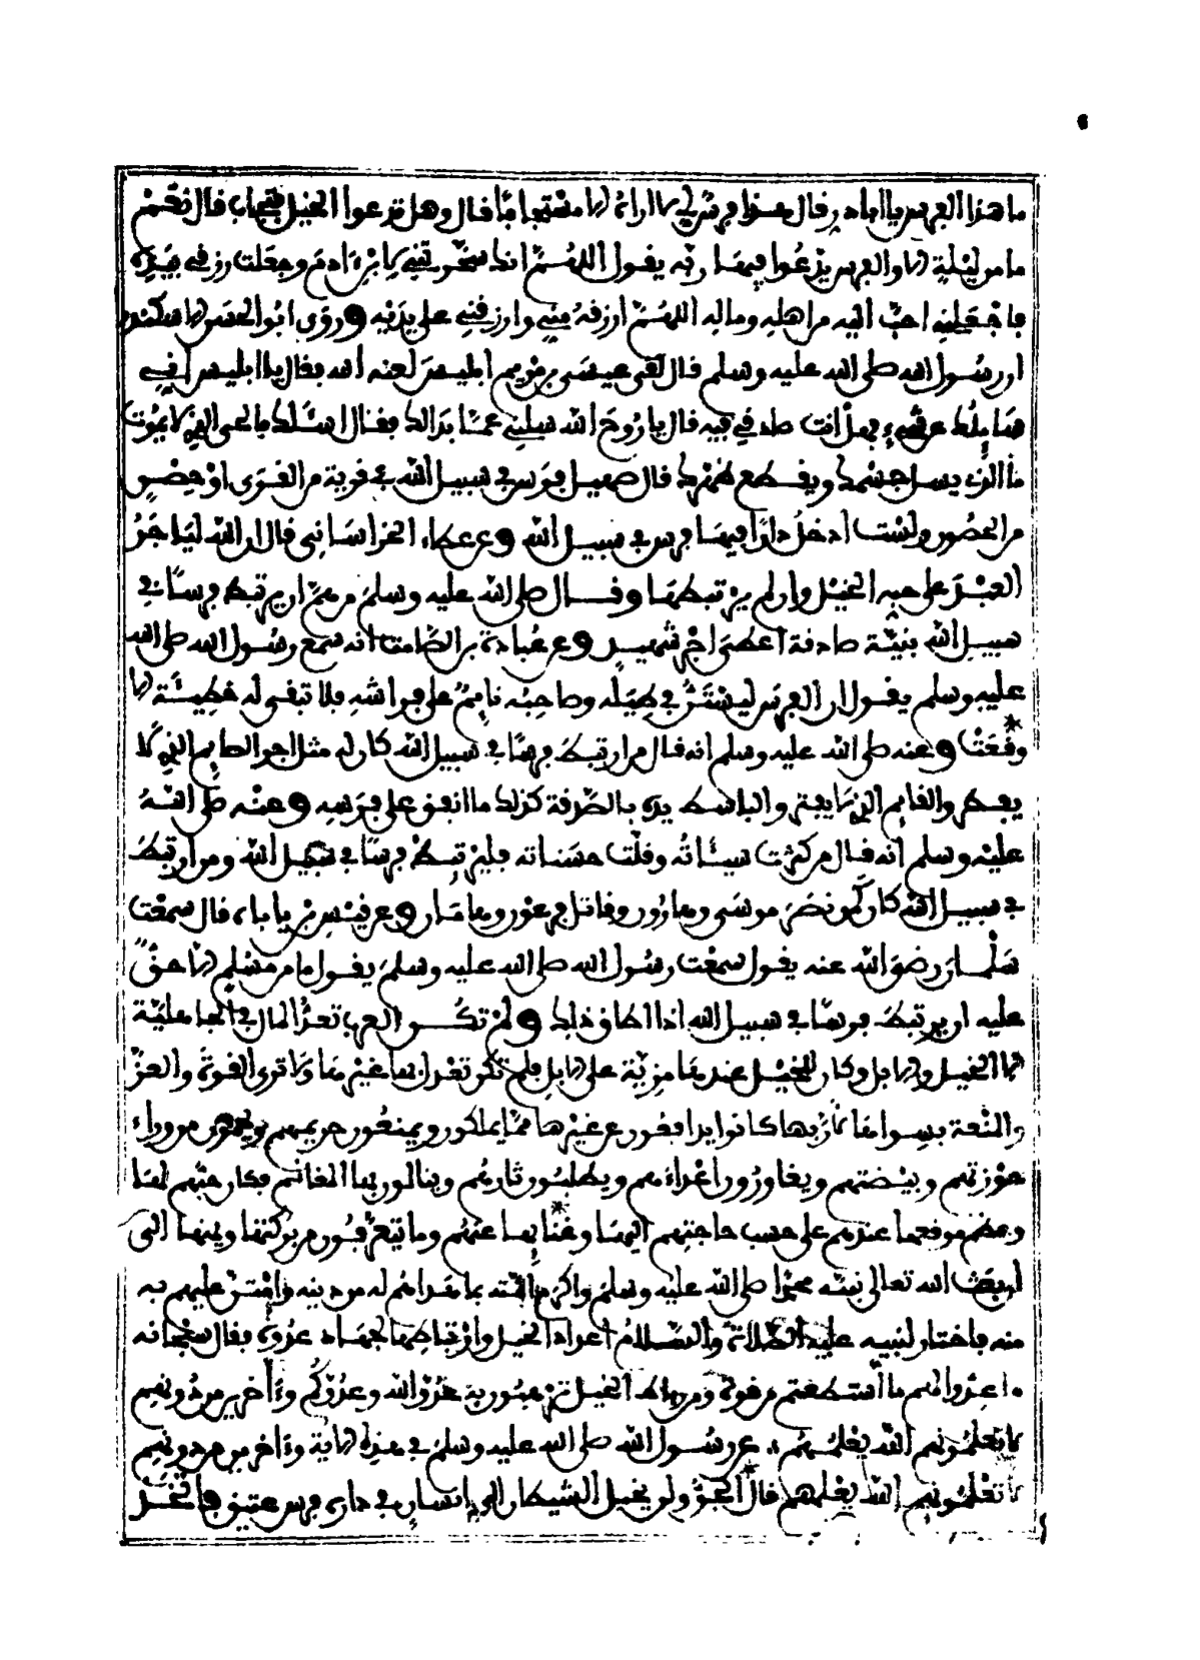 ما هذا الفرس يا ابا ذر فقال هذا فرس لي لا اراه الا مستجابا فقال وهل تدعوا الخيل فتجاب قال نعم
ما من ليلة الا والفرس يدعوا فيها ربه يقول اللهم انك سخرتني لابن ءادم وجعلت رزقي بيده
فاجعلني احب اليه من اهله وماله اللهم ارزقه مني وارزقني على يديه وروى ابو الحسن الاسكندر
ان رسول الله صلى الله عليه وسلم قال لقي عيسى بن مريم ابليس لعنه الله فقال يا ابليس اني
سايلك عن شيء فهل انت صادقي فيه قال يا روح الله سلني عما بدا لك فقال اسئلك بالحي الذي لا يموت
ما الذي يسل جسمك ويقطع ظهرك قال صهيل فرس في سبيل الله في قرية من القرى او حصن
من الحصون ولست ادخل دارا فيها فرس في سبيل الله وعن عطاء الخراساني قال ان الله ليأجر
العبد على حبه الخيل وان لم يرتبطها وقال صلى الله عليه وسلم من هم ان يرتبط فرسا في
سبيل الله بنية صادقة اعطي اجر شهيد وعن عبادة بن الصامت انه سمع رسول الله صلى الله
عليه وسلم يقول ان الفرس ليستن في طيله وصاحبه نايم على فراشه فلا تبقى له خطيئة الا
وقعت وعنه صلى الله عليه وسلم انه قال من ارتبط فرسا في سبيل الله كان له مثل اجر الصايم الذي لا
يفطر والقايم الذي لا يفتر والباسط يده بالصدقة كذلك ما انفق على فرسه وعنه صلى الله
عليه وسلم انه قال من كثرت سيئاته وقلت حسناته فليرتبط فرسا في سبيل الله ومن ارتبط
في سبيل الله كان كمن نصر موسى وهارون وقاتل فرعون وهامان وعن قيس بن باباه قال سمعت
سلمان رضي الله عنه يقول سمعت رسول الله صلى الله عليه وسلم يقول ما من مسلم الا حق
عليه ان يرتبط فرسا في سبيل الله اذا اطاق ذلك ولم تكن العرب تعد المال في الجاهلية
الا الخيل والابل وكان للخيل عندها مزية على الابل فلم تكن تعدل بها غيرها ولا ترى القوة والعز
والمنعة بسواها لان بها كانوا يدافعون عن غيرها مما يملكون ويمنعون حريمهم ويحمون من وراء
حوزتهم وبيضتهم ويغاورون اعداءهم ويطلبون ثارهم وينالون بها المغانم فكان حبهم لها
وعظم موقعها عندهم على حسب حاجتهم اليها وغنايها عنهم وما يتعرفون من بركتها ويمنها الى
ان بعث الله تعالى نبيه محمدا صلى الله عليه وسلم واكرم امته بما هداهم له من دينه وامتن عليهم به
منه فاختار لنبيه عليه الصلاة والسلام اعداد الخيل وارتباطها لجهاد عدوه فقال سبحانه
واعدوا لهم ما استطعتم من قوة ومن رباط الخيل ترهبون به عدو الله وعدوكم وءاخرين من دونهم
لا تعلمونهم الله يعلمهم عن رسول الله صلى الله عليه وسلم في هذه الاية وءاخرين من دونهم
لا تعلمونهم الله يعلمهم قال الجن ولن يخبل الشيطان انسان في داره فرس عتيق فاتخذ